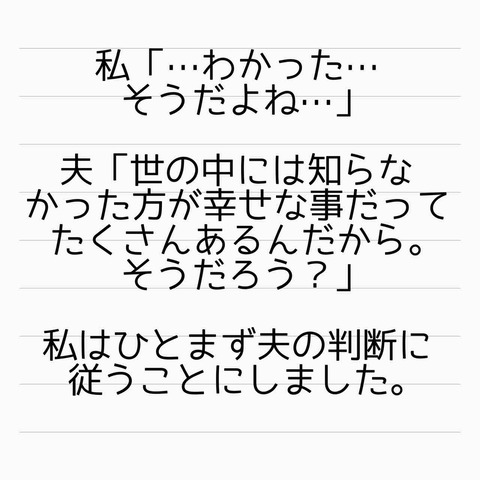 私「…わかった…
そうだよね…」
夫「世の中には知らな
かった方が幸せな事だって
たくさんあるんだから。
そうだろう？」
私はひとまず夫の判断に
従うことにしました。